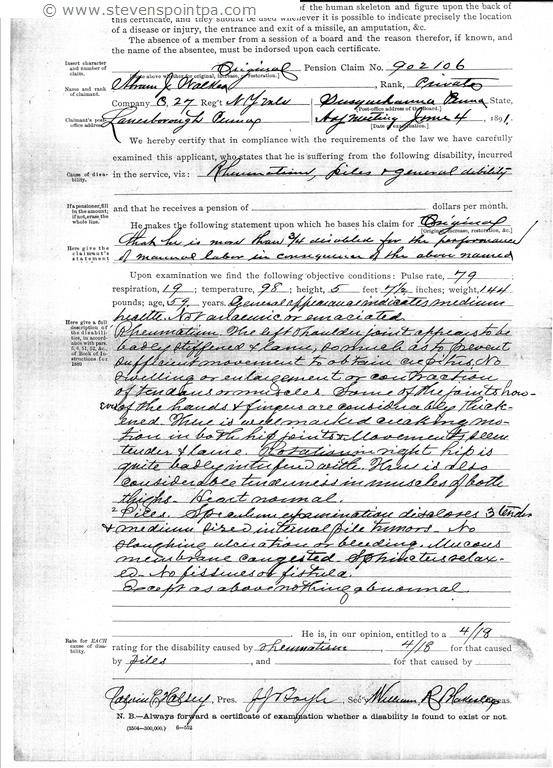 © www.stevenspointpa.com of the human skeleton and figure upon the back of
this certificate, and they should be used whenever it is possible to indicate precisely the location
of a disease or injury, the entrance and exit of a missile, an amputation, &c.
The absence of a member from a session of a board and the reason therefor, if known, and
the name of the absentee, must be indorsed upon each certificate.
Insert character and number of claim.
Original Pension Claim No. 902106
[State above whether for original, increase, or restoration.]
Name and rank of claimant.
J. Walker, Rank, Private
Company C, 27 Reg't N.Y. Vols Susquehanna Penna State,
[Post-office address of the Board.]
Claimant's post-office address.
Lanesborough Penna June 4, 1891.
[Date of examination.]
We hereby certify that in compliance with the requirements of the law we have carefully
examined this applicant, who states that he is suffering from the following disability, incurred
Cause of disability.
in the service, viz: Rheumatism, piles & general debility
If a pensioner, fill in the amount; if not, erase the whole line.
and that he receives a pension of dollars per month.
He makes the following statement upon which he bases his claim for Original
[Original, increase, restoration, &c.]
Here give the claimant's statement
that he is more than 3/4 disabled for the performance
of manual labor in consequence of the above named
Upon examination we find the following objective conditions: Pulse rate, 79;
respiration, 19; temperature, 98; height, 5 feet 7 1/2 inches; weight, 144
pounds; age, 59 years. General appearance indicates medium
health. Not anaemic or emaciated.
Here give a full description of the disabilities, in accordance with pars. 5, 6, 51, 52, &c., of Book of Instructions for 1889
Rheumatism. The left shoulder joint appears to be
badly stiffened & lame, so much as to prevent
sufficient movement to obtain crepitus. No
swelling or enlargement or contraction
of tendons or muscles. Some of the joints how-
ever of the hands & fingers are considerably thick-
ened. There is well marked creaking mo-
tion in both hip joints & movements seem
tender & lame. Rotation in right hip is
quite badly interfered with. There is also
considerable tenderness in muscles of both
thighs. Heart normal.
2 Piles. Speculum examination discloses 3 tender
& medium sized internal pile tumors. No
sloughing ulceration or bleeding. Mucous
membrane congested. Sphincter relax-
ed. No fissures or fistula.
Except as above nothing abnormal
Rate for EACH cause of disability.
He is, in our opinion, entitled to a 4/18
rating for the disability caused by rheumatism, 4/18 for that caused
by piles, and for that caused by
Calvin C. Halsey, Pres. J J Boyle, Sec'y William R. Treas.
N. B.—Always forward a certificate of examination whether a disability is found to exist or not.
(2504—300,000.) 6—552